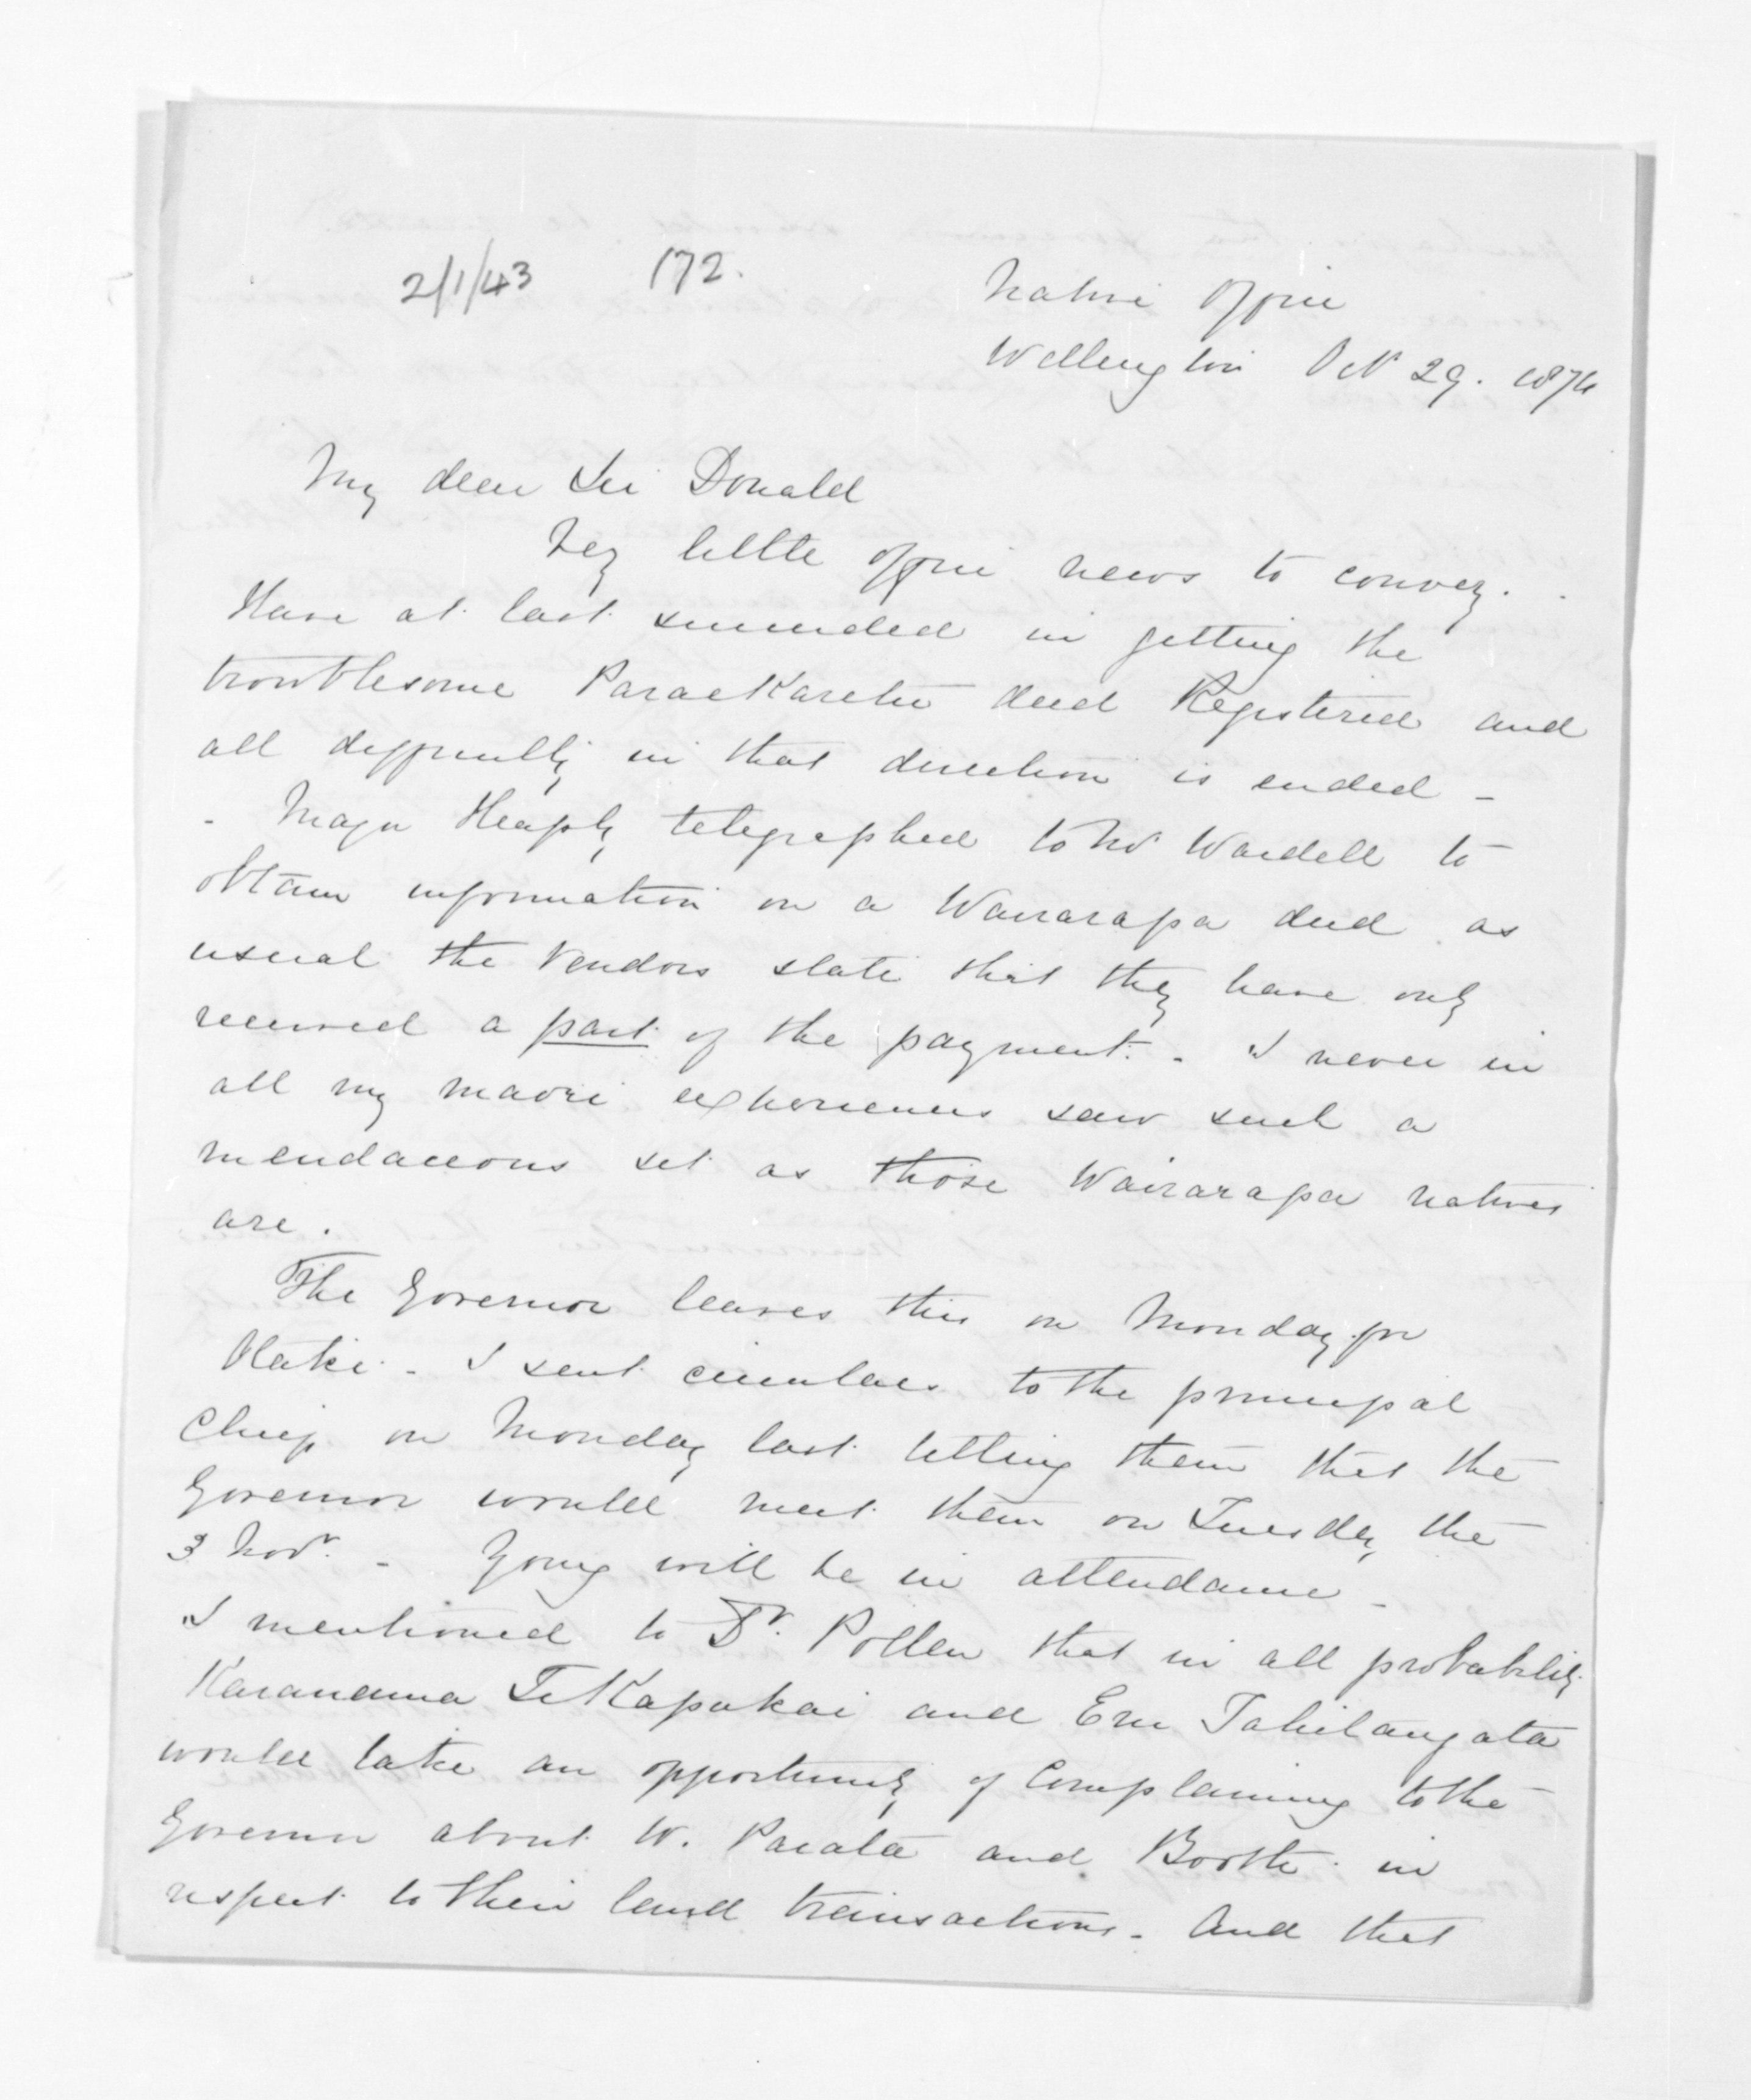 2/1/43 172.
Native Office
Wellington Oct 29. 1874
My dear Sir Donald
Very little office news to convey.
Have at last succeeded in getting the
troublesome Paraekaretu deed Registered and
all difficulty in that direction is ended -
- Major Heaphy telegraphed to Mr Wardell to
obtain information on a Wairarapa deed as
usual the vendors state that they have only
received a part of the payment. - I never in
all my maori experiences saw such a
mendaceous set as those Wairarapa natives
are.
The Governor leaves this on Monday for
Otaki - I sent circulars to the principal
Chiefs on Monday last telling them that the
Governor would meet them on Tuesday the
3 Novr. - Young will be in attendance -
I mentioned to Dr. Pollen that in all probability
Karanama Te Kapukai and Eru Tahitangata
would take an opportunity of Complaining to the
Governor about W. Parata and Booth in
respect to their land transactions - and that